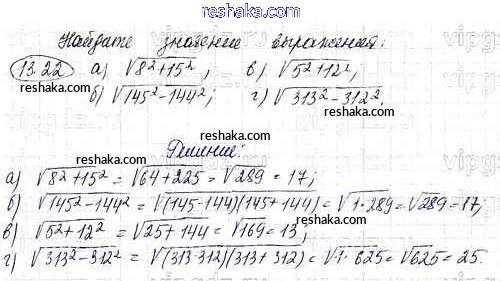 reshaka.com
Найдите значение выражения:
13.22 а) √8²+15²; в) √5²+12²;
б) √145²-144²; г) √313²-312².
reshaka.com reshaka.com
reshaka.com
Решение:
reshaka.com
а) √8²+15² = √64+225 = √289 = 17;
б) √145²-144² = √(145-144)(145+144) = √1·289 = √289 = 17;
в) √5²+12² = √25+144 = √169 = 13;
г) √313²-312² = √(313-312)(313+312) = √1·625 = √625 = 25.
reshaka.com reshaka.com